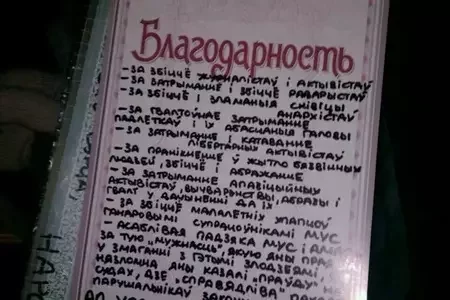 Благодарность
– ЗА ЗБІЦЦЁ ЖУРНАЛІСТАЎ І АКТЫВІСТАЎ
– ЗА ЗАТРЫМАННЕ І ЗБІЦЦЁ
– ЗА ЗБІЦЦЁ І ЗЛАМАНЫЯ СКІВІЦЫ
АНАРХІСТАЎ
– ЗА ГВАЛТОЎНАЕ ЗАТРЫМАННЕ
ПАДЛЕТКАЎ І ГАЛОВЫ
– ЗА ЗАТРЫМАННЕ І КАТАВАННЕ
ЛІБЕРТАРНЫХ АКТЫВІСТАЎ
– ЗА ПРАНІКНЕННЕ Ў ЖЫТЛО БЯЗВІННЫХ
ЛЮДЗЕЙ, ЗБІЦЦЁ І АБРАЖАННЕ
– ЗА ЗАТРЫМАННЕ АПАЗІЦЫЙНЫХ
АКТЫВІСТАЎ, АБРАЗЫ І
ГВАЛТ У ДАЧЫНЕННІ ДА ІХ
– ЗА ЗБІЦЦЁ МАЛАЛЕТНІХ ХЛАПЦОЎ
ГАНАРОВЫМІ СУПРАЦОЎНІКАМІ МУС
– АСАБЛІВАЯ ПАДЗЯКА МУС І
ЗА ТУЮ „МУЖНАСЦЬ“, ЯКУЮ ЯНЫ
У ЗМАГАННІ З ГЭТЫМІ ЗЛОДЗЕЯМІ,
ЯНЫ КАЗАЛІ „ПРАЎДУ“
СУДАХ, ДЗЕ „СПРАВЯДЛІВА“
ПАРУШАЛЬНІКАЎ